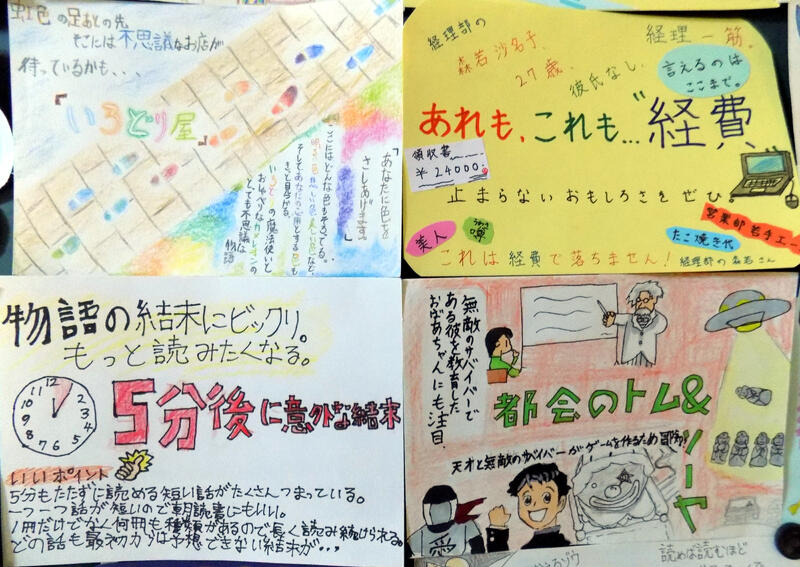 虹色の足あとの先
そこには不思議なお店が
待っているかも、、、
『いろどり屋』
「あなたに色を
さしあげます。」
ここにはどんな色もそろってる。
明るい色 悲しい色 楽しい色など、
そしてあなたの必要とする色も
きっと見つかる。
いろどりの魔法使いと
おしゃべりなカメレオンの
とっても不思議な
物語
経理部の
森若沙名子、
27歳、
彼氏なし、
経理一筋。
言えるのは
ここまで。
あれも、これも…"経費
領収書
¥24000-
止まらないおもしろさをぜひ
営業部若手エー
美人
うわさ
噂
たこ焼き代
これは経費で落ちません!
経理部の森若さん
物語の結末にビックリ。
もっと読みたくなる。
12
1
2
3
4
5
6
7
8
9
10
11
5分後に意外な結末
いいポイント
5分もたずに読める短い話がたくさんつまっている。
一つ一つ話が短いので朝読書にもいい。
1冊だけでなく何冊も種類があるので長く読み続けられる。
どの話も最初からは予想できない結末が、、、
無敵のサバイバーで
ある彼を教育した
おばあちゃんにも注目
都会のトム&
ソーヤ
天才と無敵のサバイバーがゲームを作るため冒険
愛
読めば読むほど